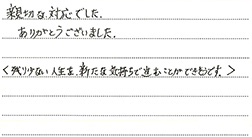 親切な対応でした。
ありがとうございました。
＜残り少ない人生を、新たな気持ちで進むことができそうです。＞